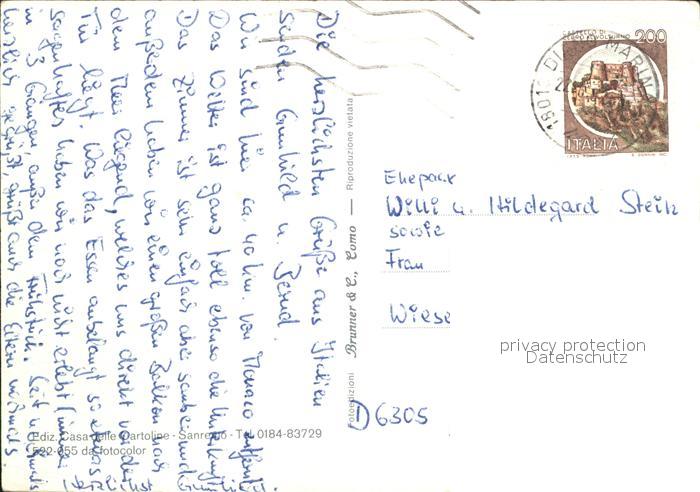 Die herzlichsten Grüße aus Italien
senden Gunhild u. Bernd.
Wir sind hier ca. 40 km. von Monaco entfernt.
Das Wetter ist ganz toll ebenso die Unterkunft.
Das Zimmer ist sehr einfach aber sauber und
außerdem haben wir einen großen Balkon nach
dem Meer liegend, welches uns direkt vor der
Tür liegt. Was das Essen anbelangt so etwas
sagenhaftes haben wir noch nicht erlebt (immer
in 3 Gängen, außer dem Frühstück. Seid nochmals
herzlich gegrüßt, grüßt auch die Eltern nochmals.
herzlichst
CASTELLO DI
CERRO AL VOLTURNO
200
ITALIA
18013 DI MARIN
Ehepaar
Willi u. Hildegard Stein
sowie
Frau
Wiese
D 6305
privacy protection
Datenschutz
Fotoedizioni Brunner & C., Como — Riproduzione vietata
Ediz. Casa delle Cartoline - Sanremo - Tel. 0184-83729
522-055 da fotocolor